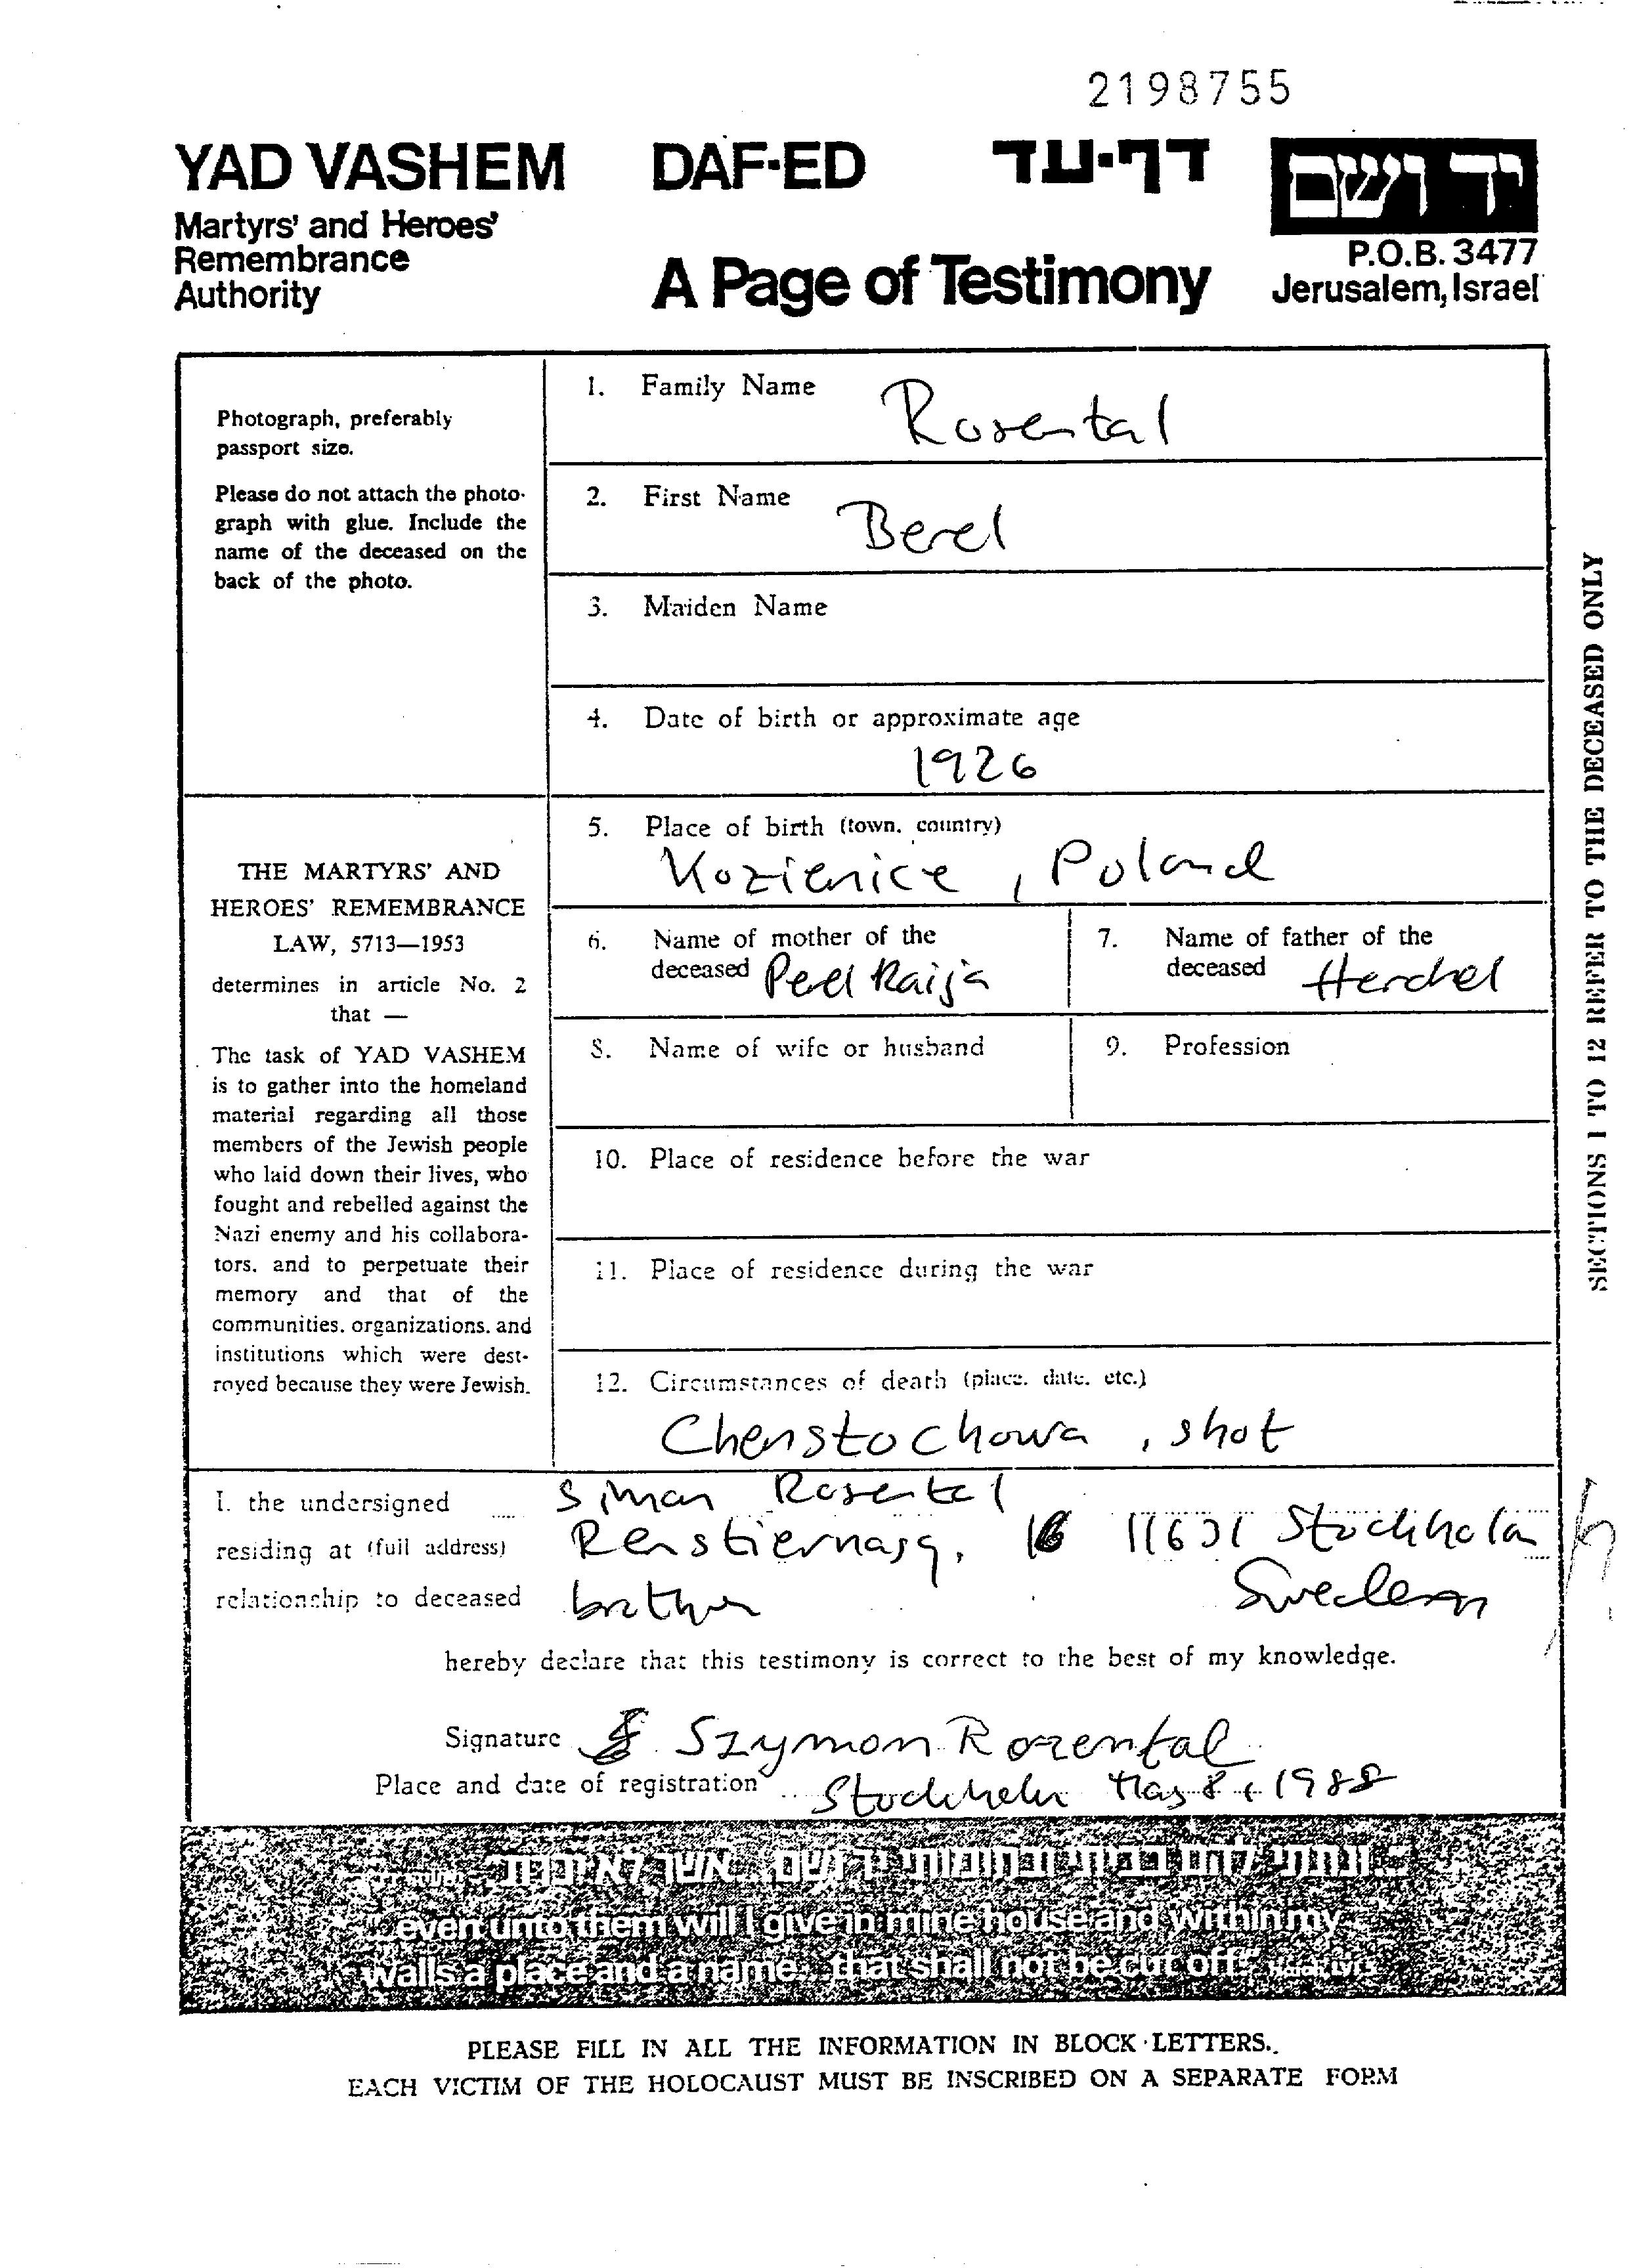 2198755
YAD VASHEM DAF-ED דף-עד יד ושם
Martyrs' and Heroes'
Remembrance
Authority
A Page of Testimony
P.O.B. 3477
Jerusalem, Israel
Photograph, preferably
passport size.
Please do not attach the photo-
graph with glue. Include the
name of the deceased on the
back of the photo.
THE MARTYRS' AND
HEROES' REMEMBRANCE
LAW, 5713—1953
determines in article No. 2
that —
The task of YAD VASHEM
is to gather into the homeland
material regarding all those
members of the Jewish people
who laid down their lives, who
fought and rebelled against the
Nazi enemy and his collabora-
tors. and to perpetuate their
memory and that of the
communities. organizations. and
institutions which were dest-
royed because they were Jewish.
1. Family Name Rosental
2. First Name Berel
3. Maiden Name
4. Date of birth or approximate age
1926
5. Place of birth (town. country)
Kozienice, Poland
6. Name of mother of the
deceased Perel Raija
7. Name of father of the
deceased Herchel
8. Name of wife or husband
9. Profession
10. Place of residence before the war
11. Place of residence during the war
12. Circumstances of death (place. date. etc.)
Chenstochowa, shot
SECTIONS 1 TO 12 REFER TO THE DECEASED ONLY
I. the undersigned Simon Rosental
residing at (full address) Renstiernasg. 16 11631 Stockholm
Sweden
relationship to deceased brother
hereby declare that this testimony is correct to the best of my knowledge.
Signature Szymon Rozental
Place and date of registration Stockholm May 8, 1988
ונתתי להם בביתי ובחומותי יד ושם... אשר לא יכרת
"...even unto them will I give in mine house and within my
walls a place and a name...that shall not be cut off"
PLEASE FILL IN ALL THE INFORMATION IN BLOCK LETTERS.
EACH VICTIM OF THE HOLOCAUST MUST BE INSCRIBED ON A SEPARATE FORM